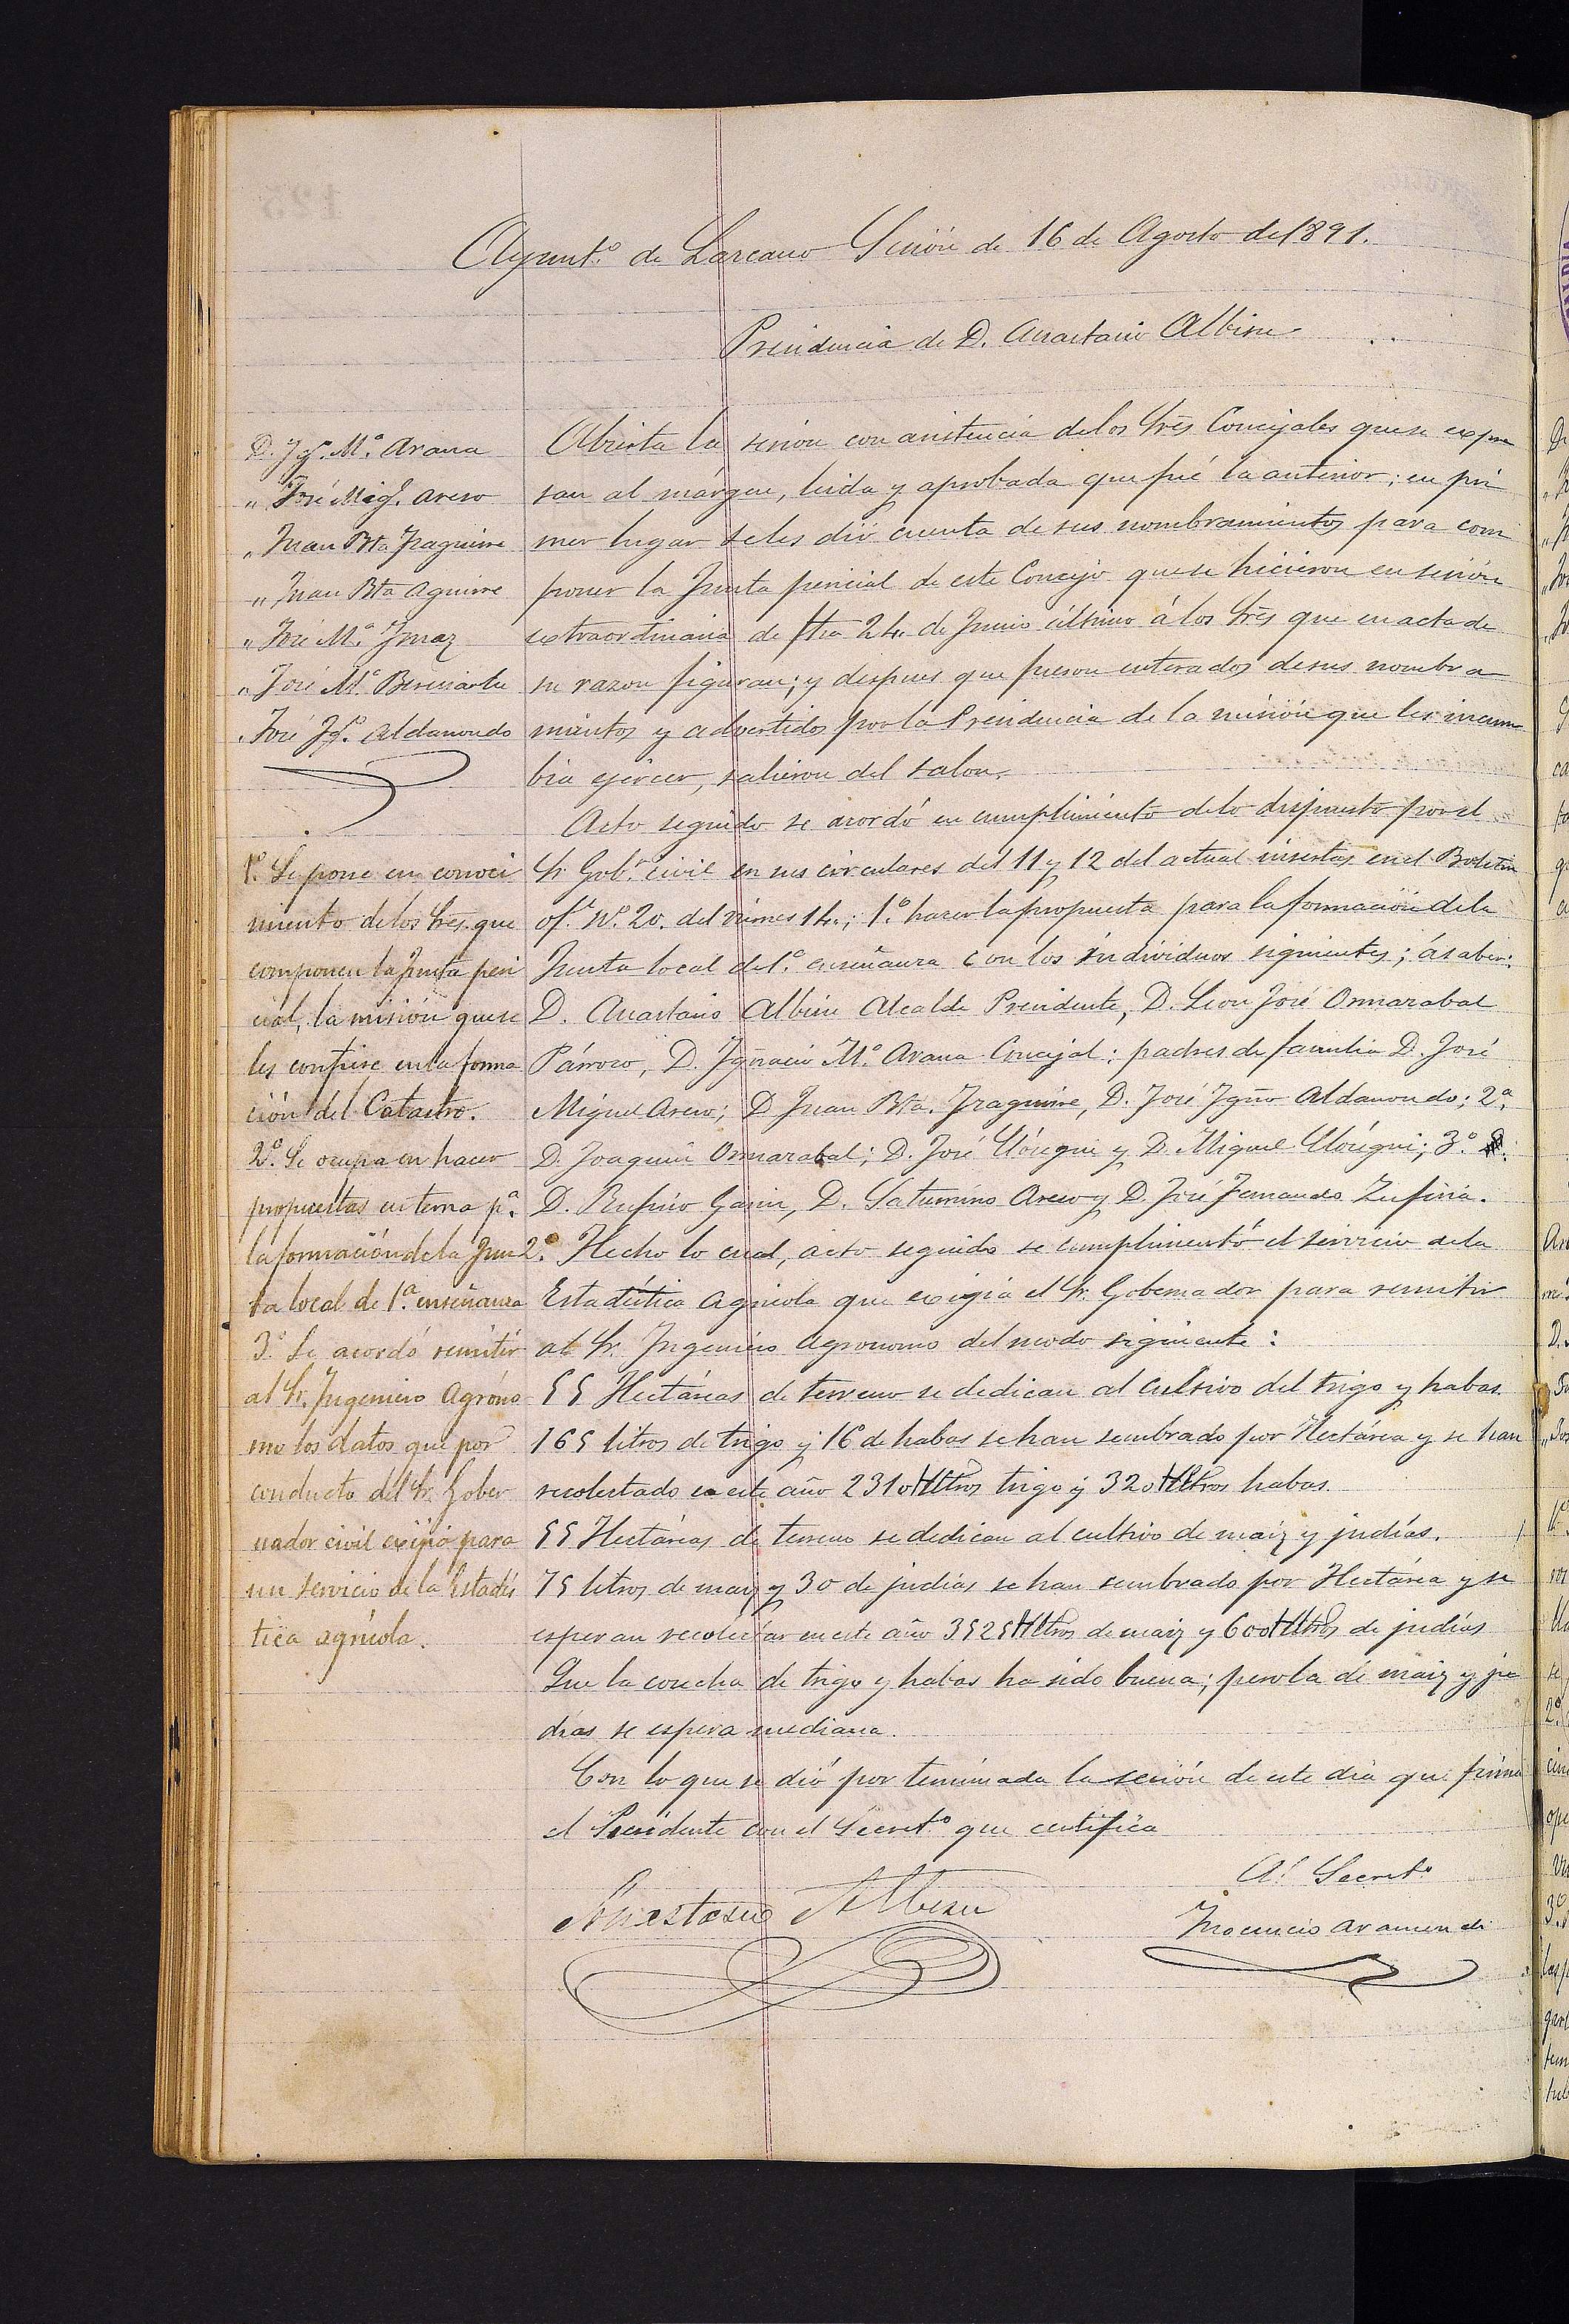 Ayunt.º de Lazcano Sesión de 16 de Agosto de 1891.
Presidencia de D. Anastasio Albisu
D. Igº. M.ª Arana
" José Migl. Areso
" Juan Bta Iraguirre
" Juan Bta Aguirre
" José M.ª Imaz
" José M.ª Bereciartu
" José Igº. Aldanondo
Abierta la sesion con asistencia de los Srēs Concejales que se expre
san al márgen, leida y aprobada que fué la anterior; en pri
mer lugar se les dió cuenta de sus nombramientos para com
poner la Junta pericial de este Concejo que se hicieron en sesión
extraordinaria de fha 24 de Junio último á los Srēs que en acta de
su razon figuran; y despues que fueron enterados de sus nombra
mientos y advertidos por la Presidencia de la misión que les incum
bia ejercer, salieron del salon.
Acto seguido se acordó en cumplimiento de lo dispuesto por el
Sr Gobr. civil en sus circulares del 11 y 12 del actual insertas en el Boletin
of.l N.º 20. del viernes 14.; 1.º hacer la propuesta para la formación de la
Junta local de 1.ª enseñanza con los individuos siguientes; á saber:
D. Anastasio Albisu Alcalde Presidente, D. Leon José Ormazabal
Párroco, D. Ignacio M.ª Arana Concejal: padres de familia D. José
Miguel Areso; D Juan Bta. Iraguirre, D. José Igno Aldanondo; 2.ª
D. Joaquin Ormazabal; D. José Urtegui y D. Miguel Urtegui; 3.º
D. Rufino Garin, D. Saturnino Areso y D. José Fernando Zufiria.
2.º Hecho lo cual, acto seguido se cumplimentó el servicio de la
Estadística Agricola que exigia el Sr. Gobernador para remitir
al Sr. Ingeniero Agronomo del modo siguiente:
55 Hectáreas de terreno se dedican al cultivo del trigo y habas.
165 litros de trigo y 16 de habas se han sembrado por Hectárea y se han
recolectado en este año 2310 Hltros trigo y 320 Hltros habas.
55 Hectáreas de terreno se dedican al cultivo de maiz y judías.
75 litros de maiz y 30 de judías se han sembrado por Hectárea y se
esperan recolectar en este año 3525 Hltros de maiz y 600 Hltros de judías
Que la cosecha de trigo y habas ha sido buena; pero la de maiz y ju
dias se espera mediana.
Con lo que se dió por terminada la sesión de este dia que firma
el Presidente con el Secret.º que certifica
1.º Se pone en conoci
miento de los Srēs. que
componen la Junta peri
cial, la misión que se
les confiere en la forma
ción del Catastro.
2.º Se ocupa en hacer
propuestas en terna p.ª
la formación de la Jun
ta local de 1.ª enseñanza
3.º Se acordó remitir
al Sr. Ingeniero Agróno
mo los datos que por
conducto del Sr. Gober
nador civil exijió para
un servicio de la Estadís
tica agrícola.
Anastasio Albisu
El Secret.º
Inocencio Aramendi